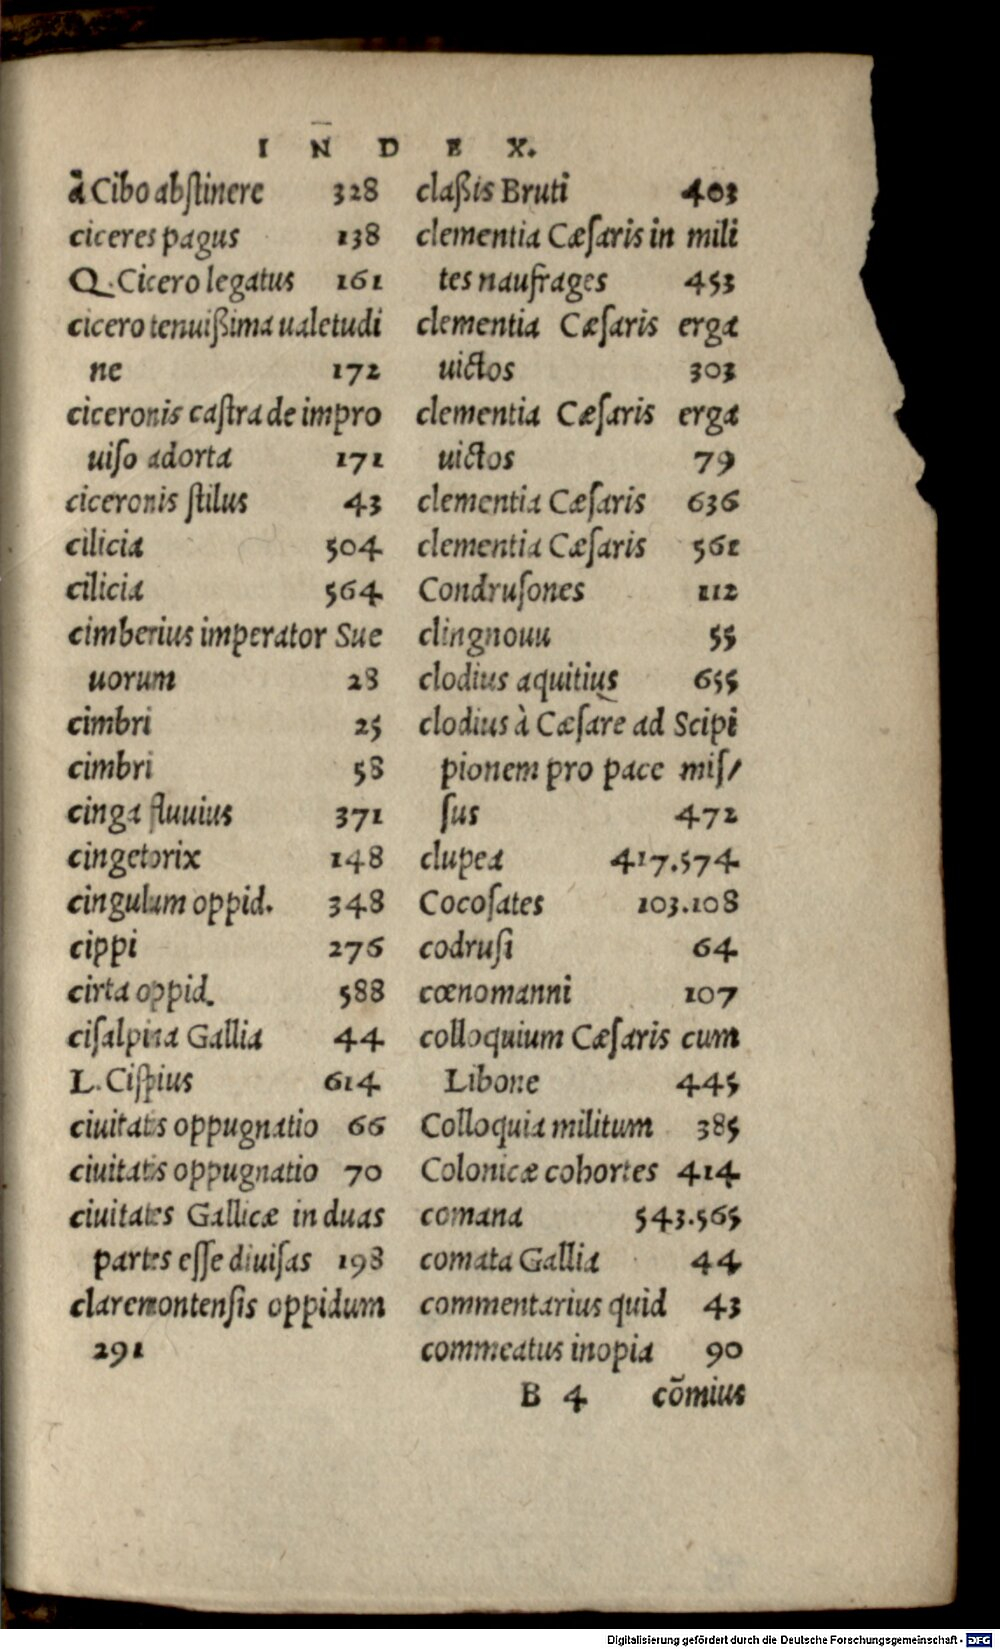 INDEX.
à Cibo abſtinere 328
ciceres pagus 138
Q. Cicero legatus 161
cicero tenuißima ualetudi
ne 172
ciceronis caſtra de impro
uiſo adorta 171
ciceronis ſtilus 43
cilicia 504
cilicia 564
cimberius imperator Sue
uorum 28
cimbri 25
cimbri 58
cinga fluuius 371
cingetorix 148
cingulum oppid. 348
cippi 276
cirta oppid. 588
ciſalpina Gallia 44
L. Ciſpius 614
ciuitatis oppugnatio 66
ciuitatis oppugnatio 70
ciuitates Gallicæ in duas
partes eſſe diuiſas 198
claremontenſis oppidum
291
claßis Bruti 403
clementia Cæſaris in mili
tes naufrages 453
clementia Cæſaris erga
uictos 303
clementia Cæſaris erga
uictos 79
clementia Cæſaris 636
clementia Cæſaris 561
Condruſones 112
clingnouu 55
clodius aquitius 655
clodius à Cæſare ad Scipi
pionem pro pace miſ/
ſus 472
clupea 417.574
Cocoſates 103.108
codruſi 64
cœnomanni 107
colloquium Cæſaris cum
Libone 445
Colloquia militum 385
Colonicæ cohortes 414
comana 543.565
comata Gallia 44
commentarius quid 43
commeatus inopia 90
B 4 cõmius
Digitalisierung gefördert durch die Deutsche Forschungsgemeinschaft - DFG